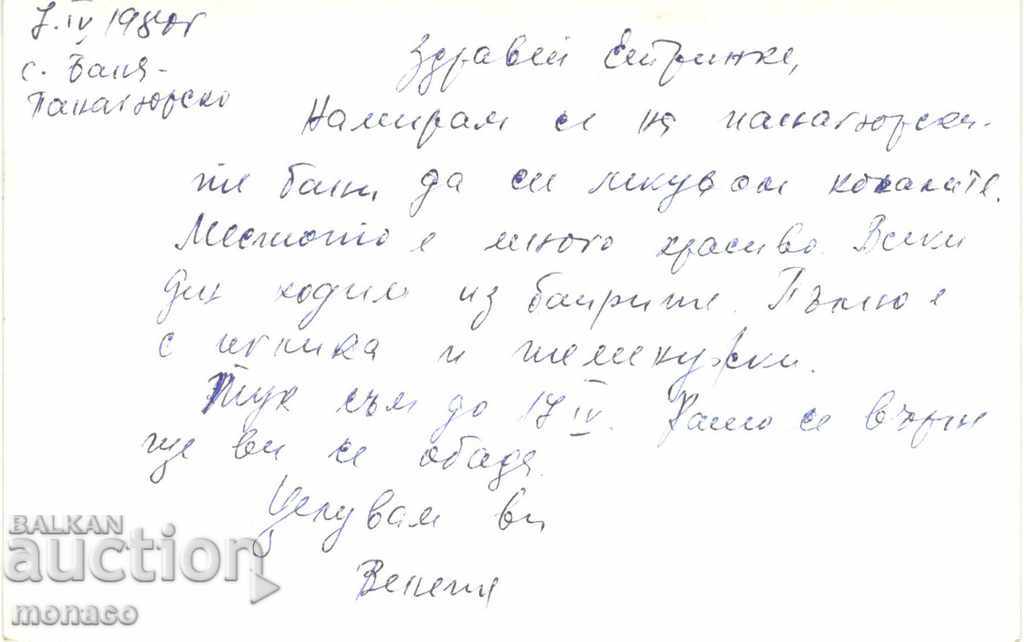 7.IV 1980г
с. Баня-
Панагюрско
Здравей
Намирам се на панагюрски-
те бани, да си лекувам кокалите.
Мястото е много красиво. Всеки
ден ходим из баирите. Пълно е
с иглика и теменужки.
Тук съм до 17 IV. Като се върна
ще ви се обадя.
Целувам ви
Венета
BALKAN
auction
monaco